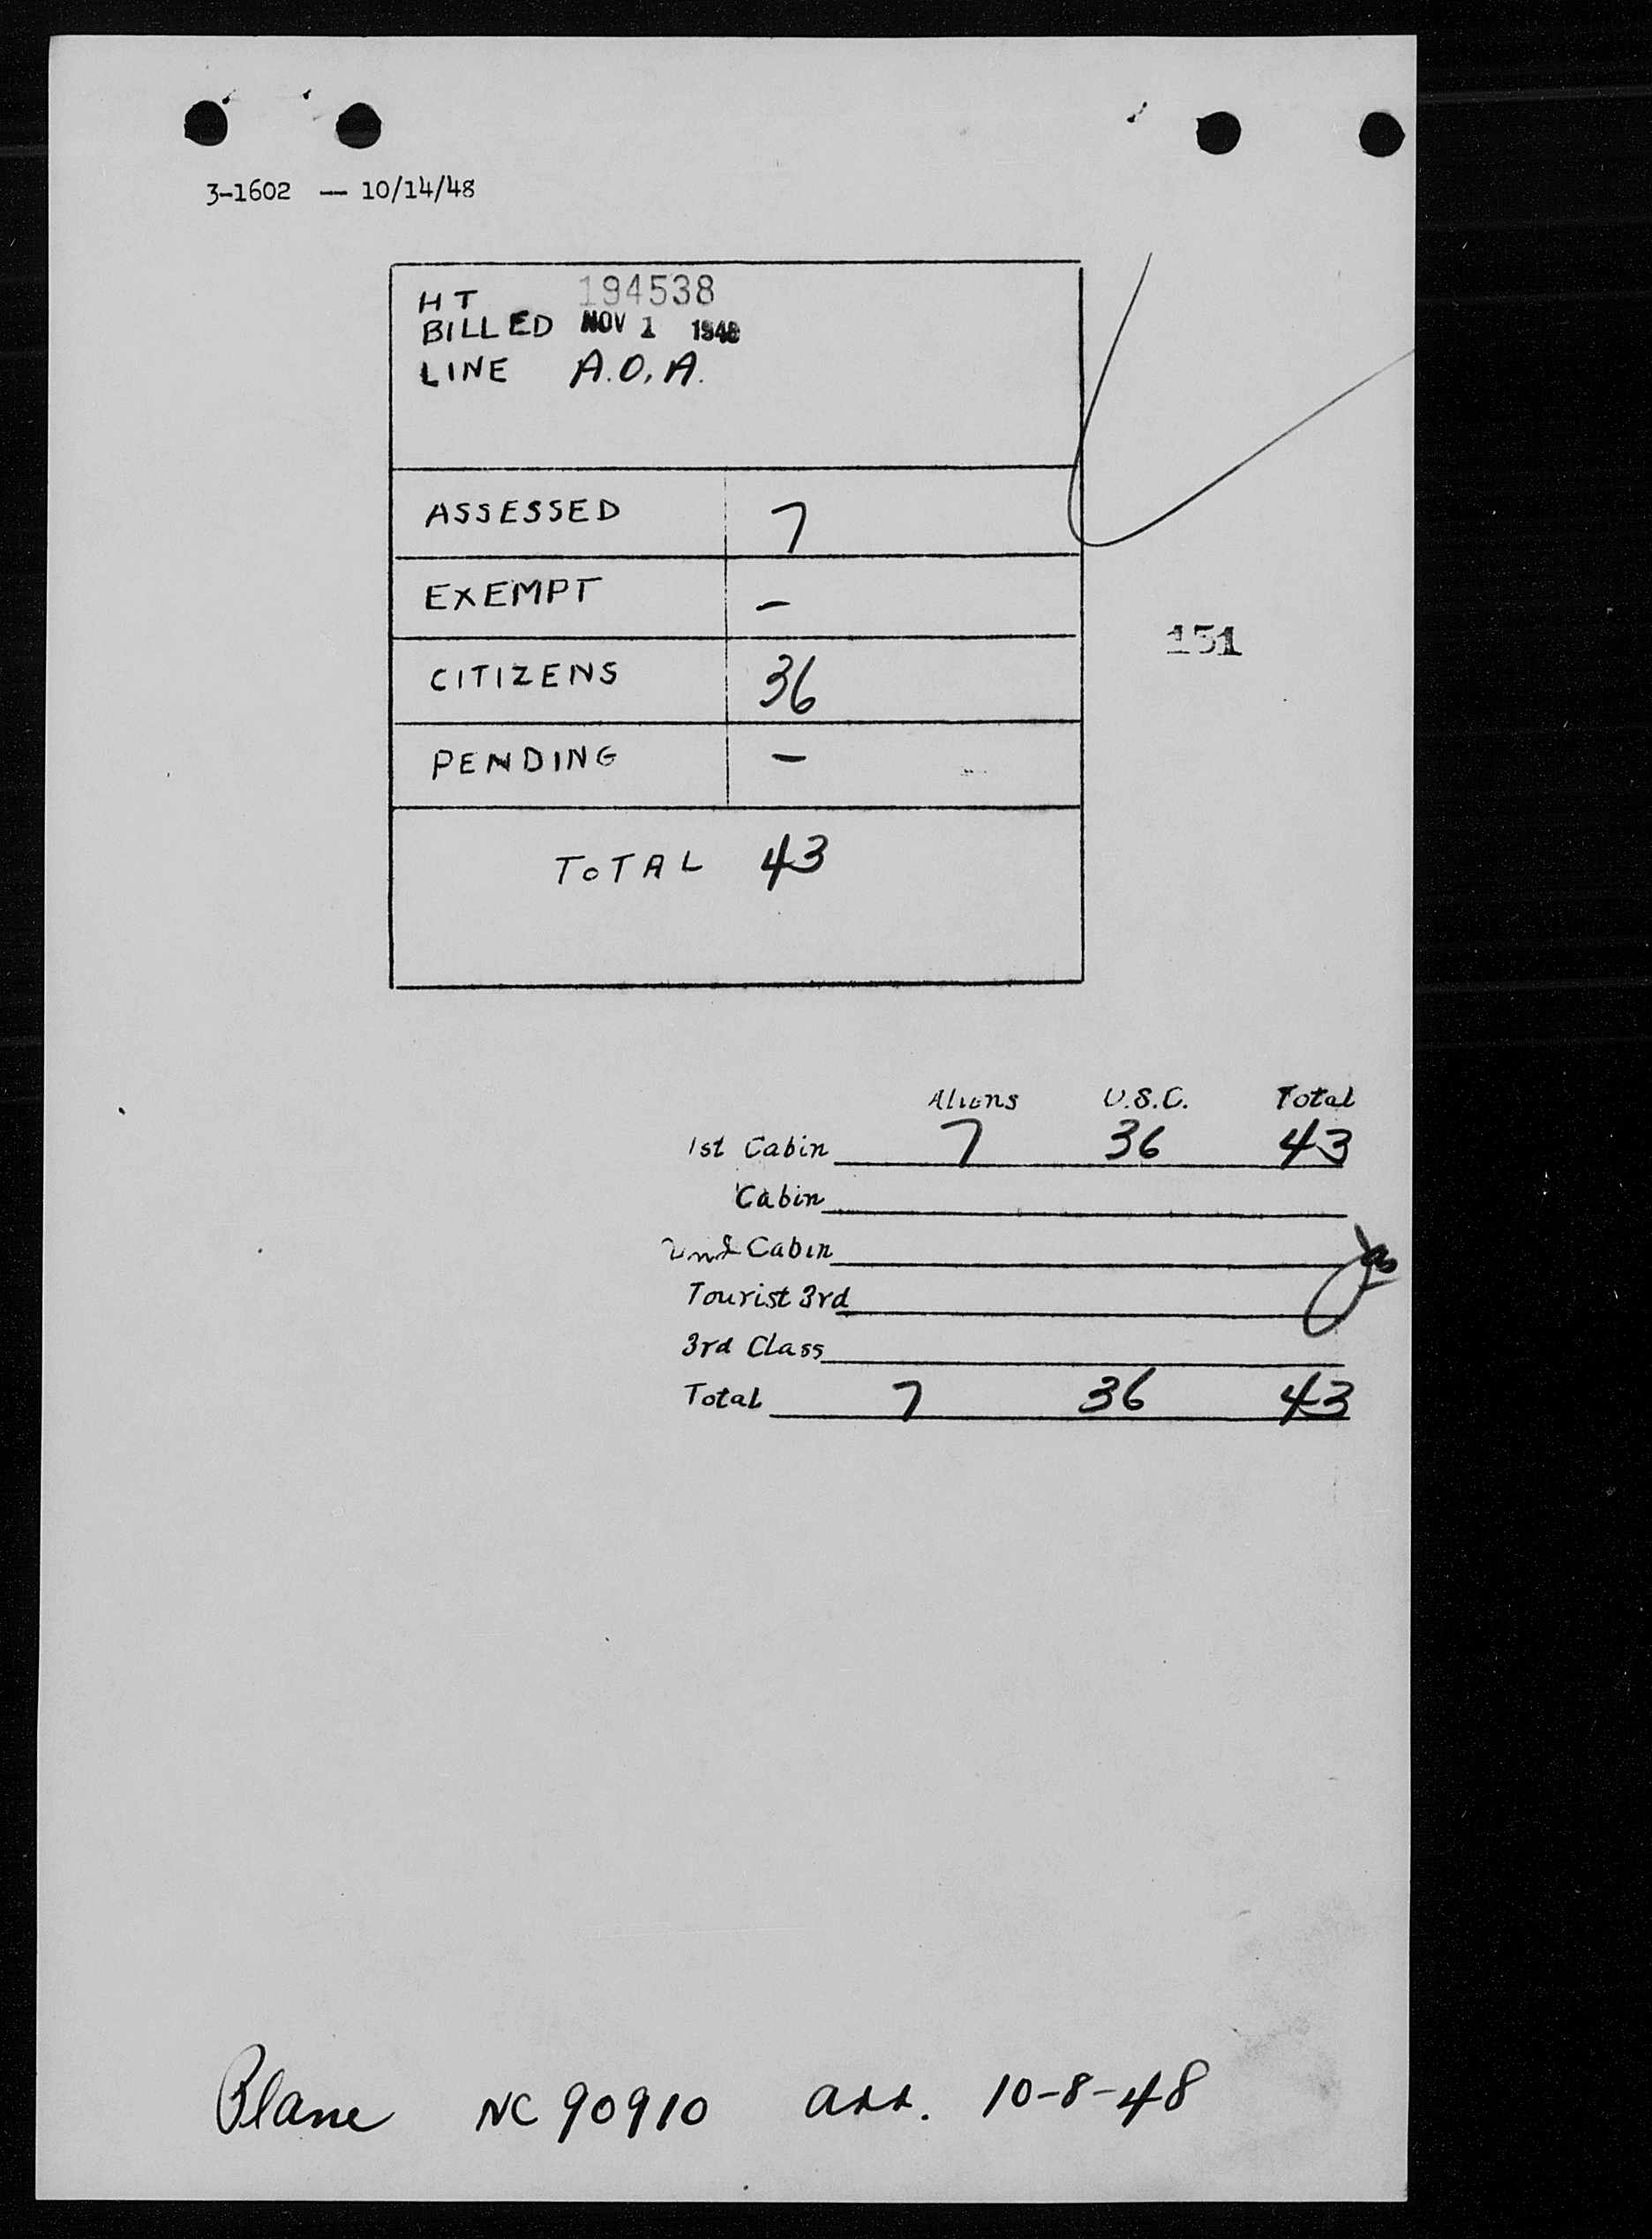 3-1602 — 10/14/48
HT 194538
BILLED NOV 1 1948
LINE A.O.A.
ASSESSED 7
EXEMPT –
CITIZENS 36
PENDING –
TOTAL 43
151
Aliens U.S.C. Total
1st Cabin 7 36 43
Cabin
2nd Cabin
Tourist 3rd
3rd Class
Total 7 36 43
Plane NC 90910 arr. 10-8-48